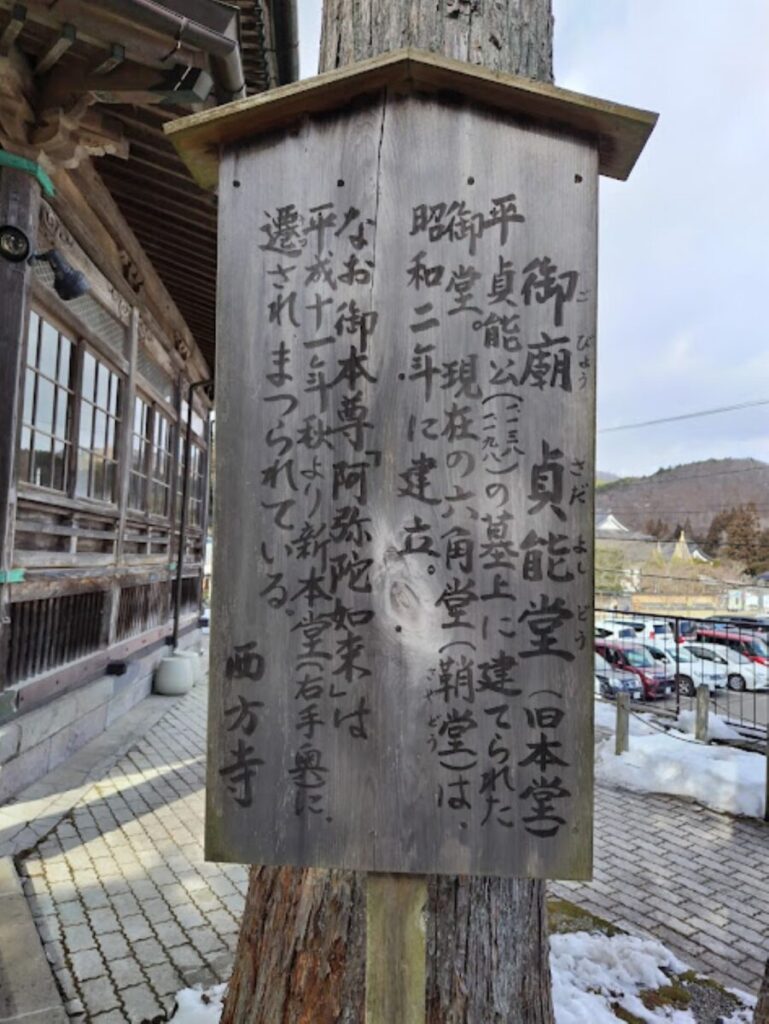 御廟 貞能堂(旧本堂)
ごびょう さだよしどう
平 貞能公(一一三八 一一九八)の墓上に建てられた
御堂。現在の六角堂(鞘堂)は、
さやどう
昭和二年に建立。
なお御本尊「阿弥陀如来」は
平成十一年秋より新本堂(右手奥)に、
遷されまつられている。
西方寺